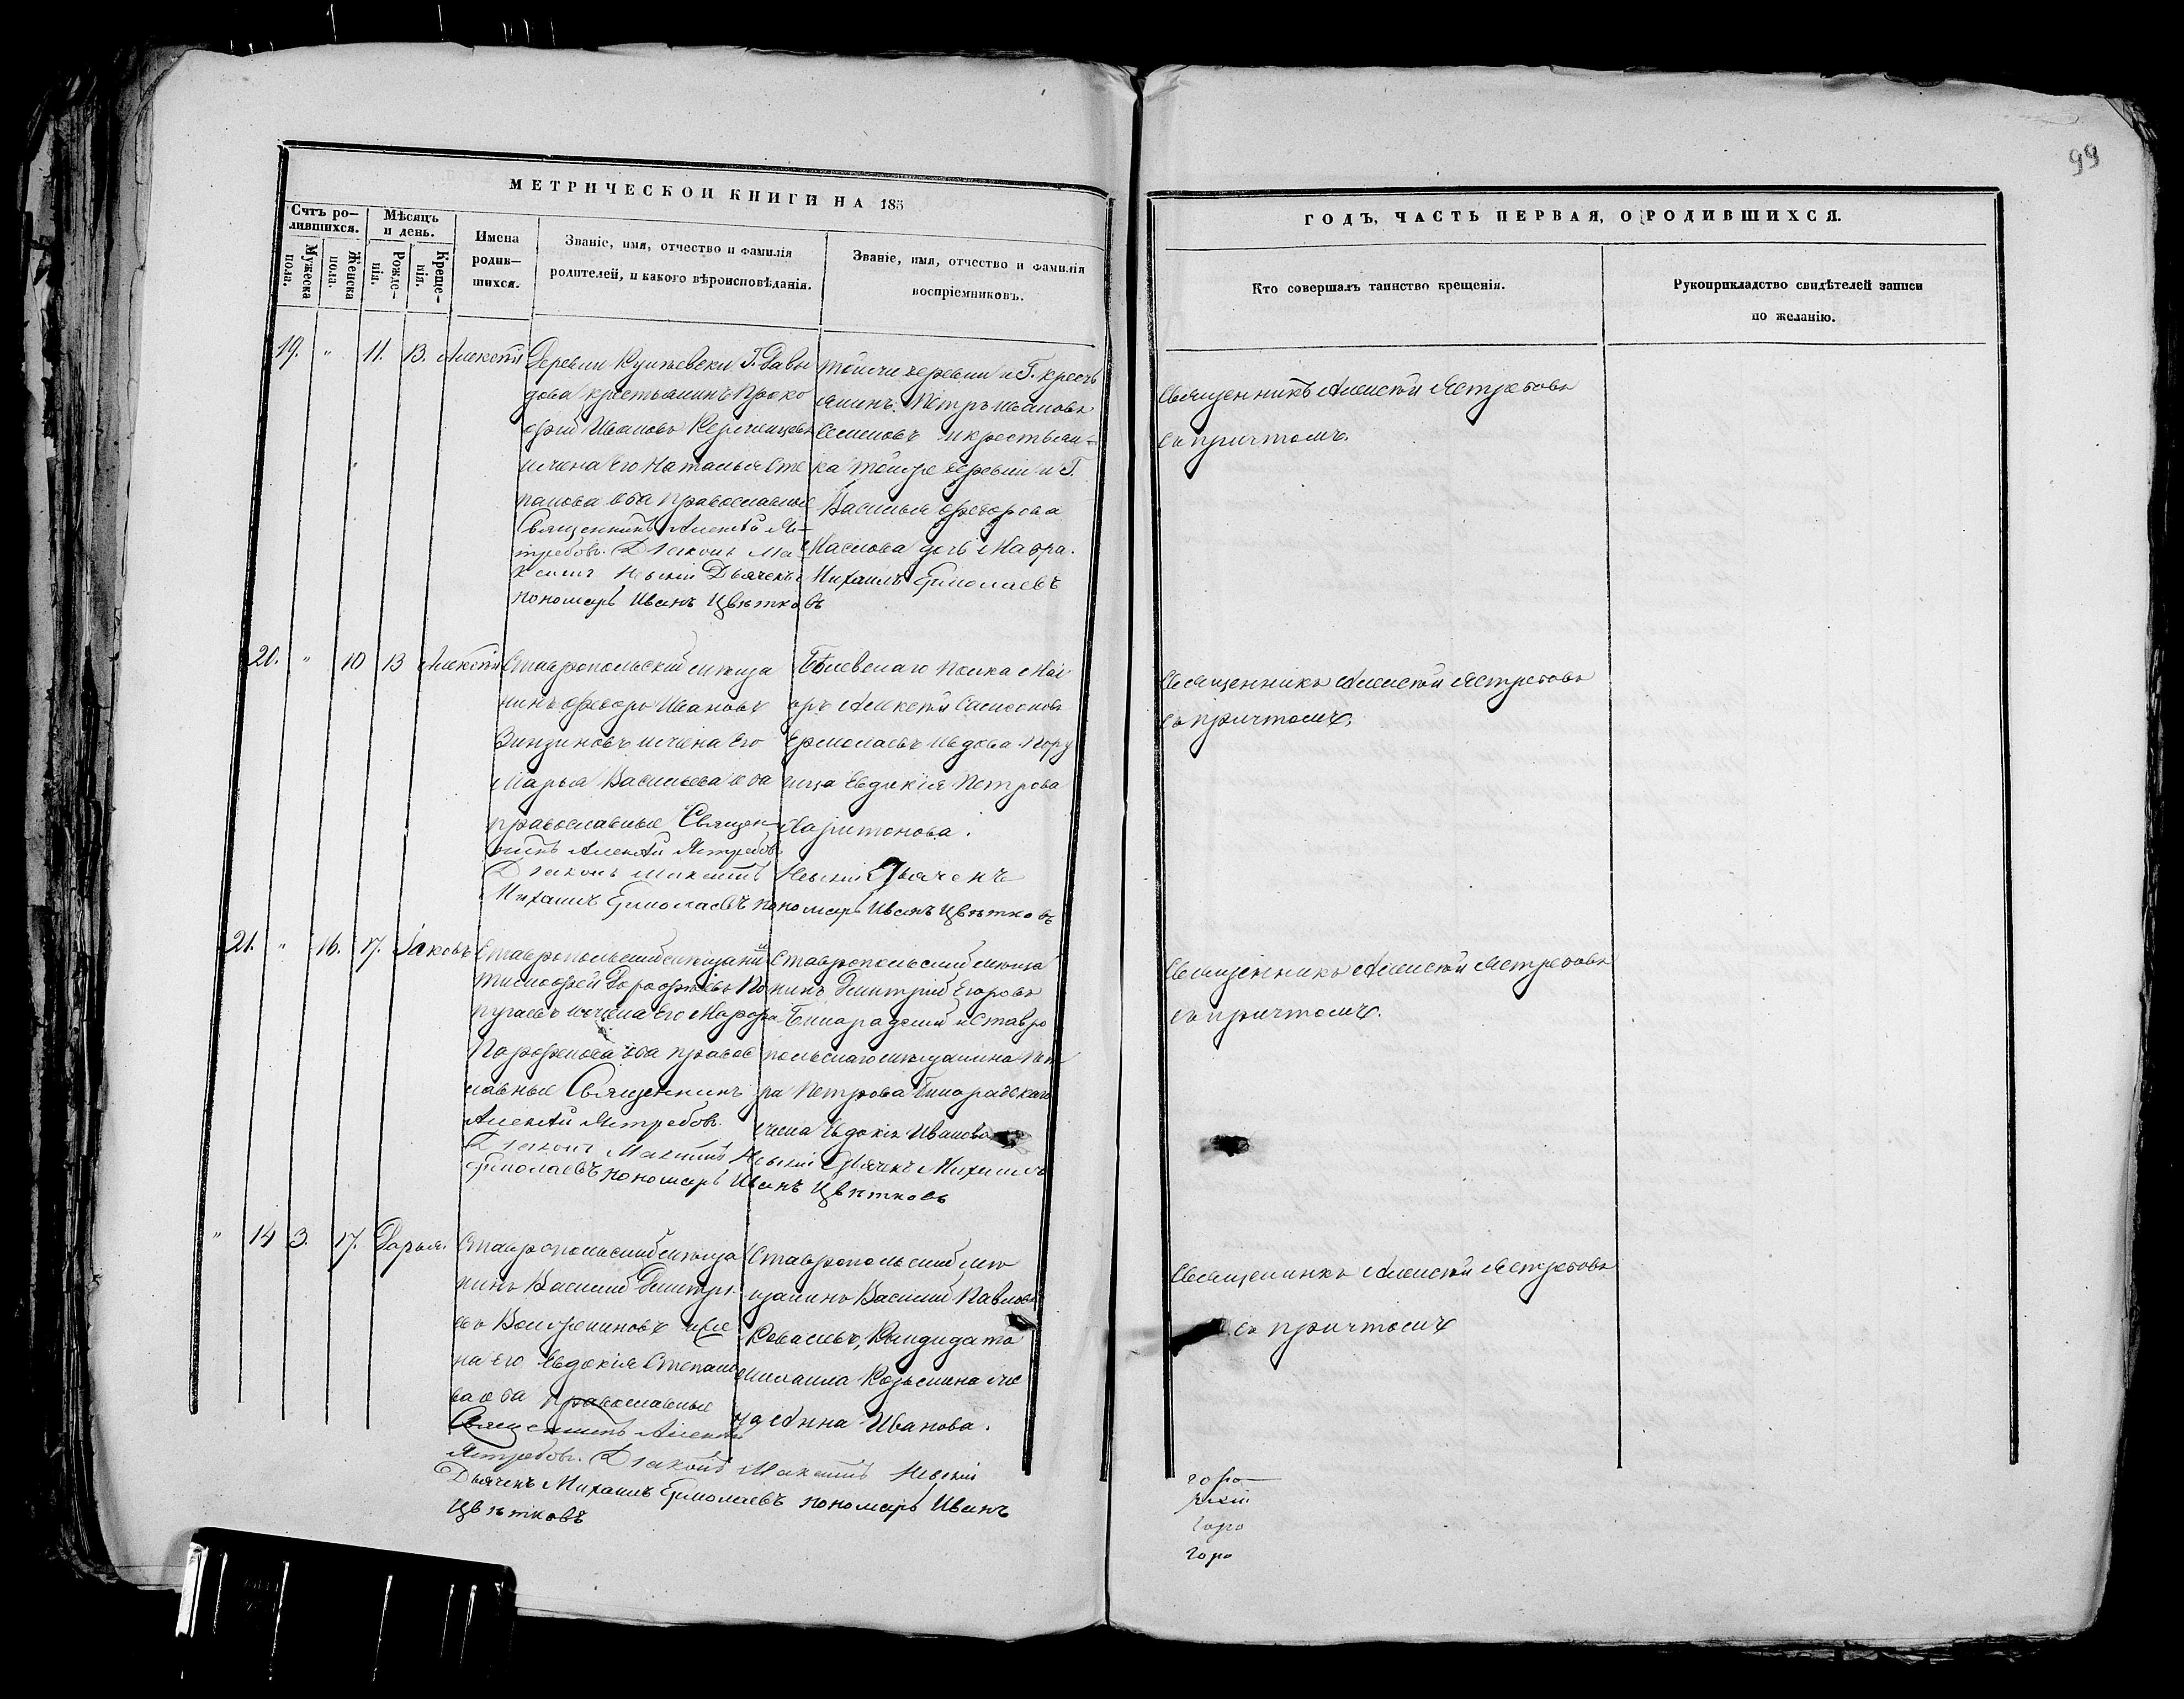 99
МЕТРИЧЕСКОЙ КНИГИ НА 185
ГОДЪ, ЧАСТЬ ПЕРВАЯ, О РОДИВШИХСЯ.
Счтъ ро-
лившихся.
Мужеска
пола.
Женска
пола.
Мѣсяцъ
и день.
Рожде-
нія.
Креще-
нія.
Имена
родив-
шихся.
Званіе, имя, отчество и фамилія
родителей, и какого вѣроисповѣданія.
Званіе, имя, отчество и фамилія
воспріемниковъ.
Кто совершалъ таинство крещенія.
Рукоприкладство свидѣтелей записи
по желанію.
19. " 11. 13. Алексѣй
Деревни Г. Давы
дова крестьянинъ Проко
фій Ивановъ
и жена его Наталья Сте
панова оба православные
Священникъ Алексѣй Я-
стребовъ. Діаконъ Ма-
ксимъ Невскій Дьячекъ
Михаилъ Ермолаевъ
пономарь Иванъ Цвѣтковъ
тойже деревни и Г. кресть
янинъ Петръ Ивановъ
Семеновъ и крестьян-
ка тойже деревни и Г.
Василья Ѳедорова
Маслова дочь Мавра.
Священникъ Алексѣй Ястребовъ
съ причтомъ.
20. " 10 13 Алексѣй
Ставропольскій мѣща
нинъ Ѳедоръ Ивановъ
Зинзиновъ и жена его
Марья Васильева оба
православные Священ-
никъ Алексѣй Ястребовъ
Діаконъ Максимъ Невскій Дьячекъ
Михаилъ Ермолаевъ пономарь Иванъ Цвѣтковъ
полка Маі
оръ Алексѣй Самсоновъ
Ермолаевъ и вдова Пору
чица Евдокія Петрова
Харитонова.
Священникъ Алексѣй Ястребовъ
съ причтомъ.
21. " 16. 17. Іаковъ
Ставропольскій мѣщанинъ
Тимофей Дорофѣевъ По
пугаевъ и жена его Марфа
Парфенова оба правос
лавные Священникъ
Алексѣй Ястребовъ.
Діаконъ Максимъ Невскій Дьячекъ Михаилъ
Ермолаевъ пономарь Иванъ Цвѣтковъ
Ставропольскій мѣща
нинъ Дмитрій Егоровъ
и Ставро
польскаго мѣщанина Пет
ра Петрова
жена Евдокія Иванова
Священникъ Алексѣй Ястребовъ
съ причтомъ.
" 14 3. 17. Дарья.
Ставропольскій мѣща
нинъ Василій Дмитрі
евъ и же
на его Евдокія Степано
ва оба православные
Священникъ Алексѣй
Ястребовъ. Діаконъ Максимъ Невскій
Дьячекъ Михаилъ Ермолаевъ пономарь Иванъ
Цвѣтковъ
Ставропольскій мѣ
щанинъ Василій Павловъ
Ковалевъ, Кандидата
Михаила Козьмина же
на Анна Иванова.
Священникъ Алексѣй Ястребовъ
съ причтомъ